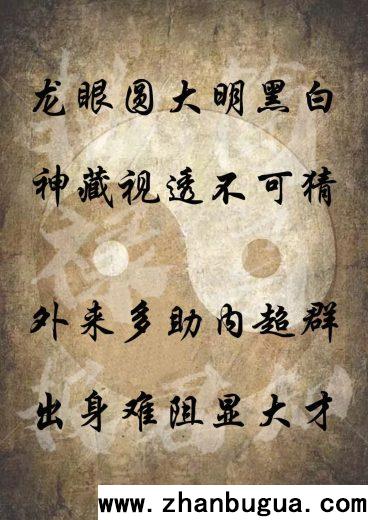 龙眼圆大明黑白
神藏视透不可猜
外来多助内超群
出身难阻显大才
www.zhanbugua.com